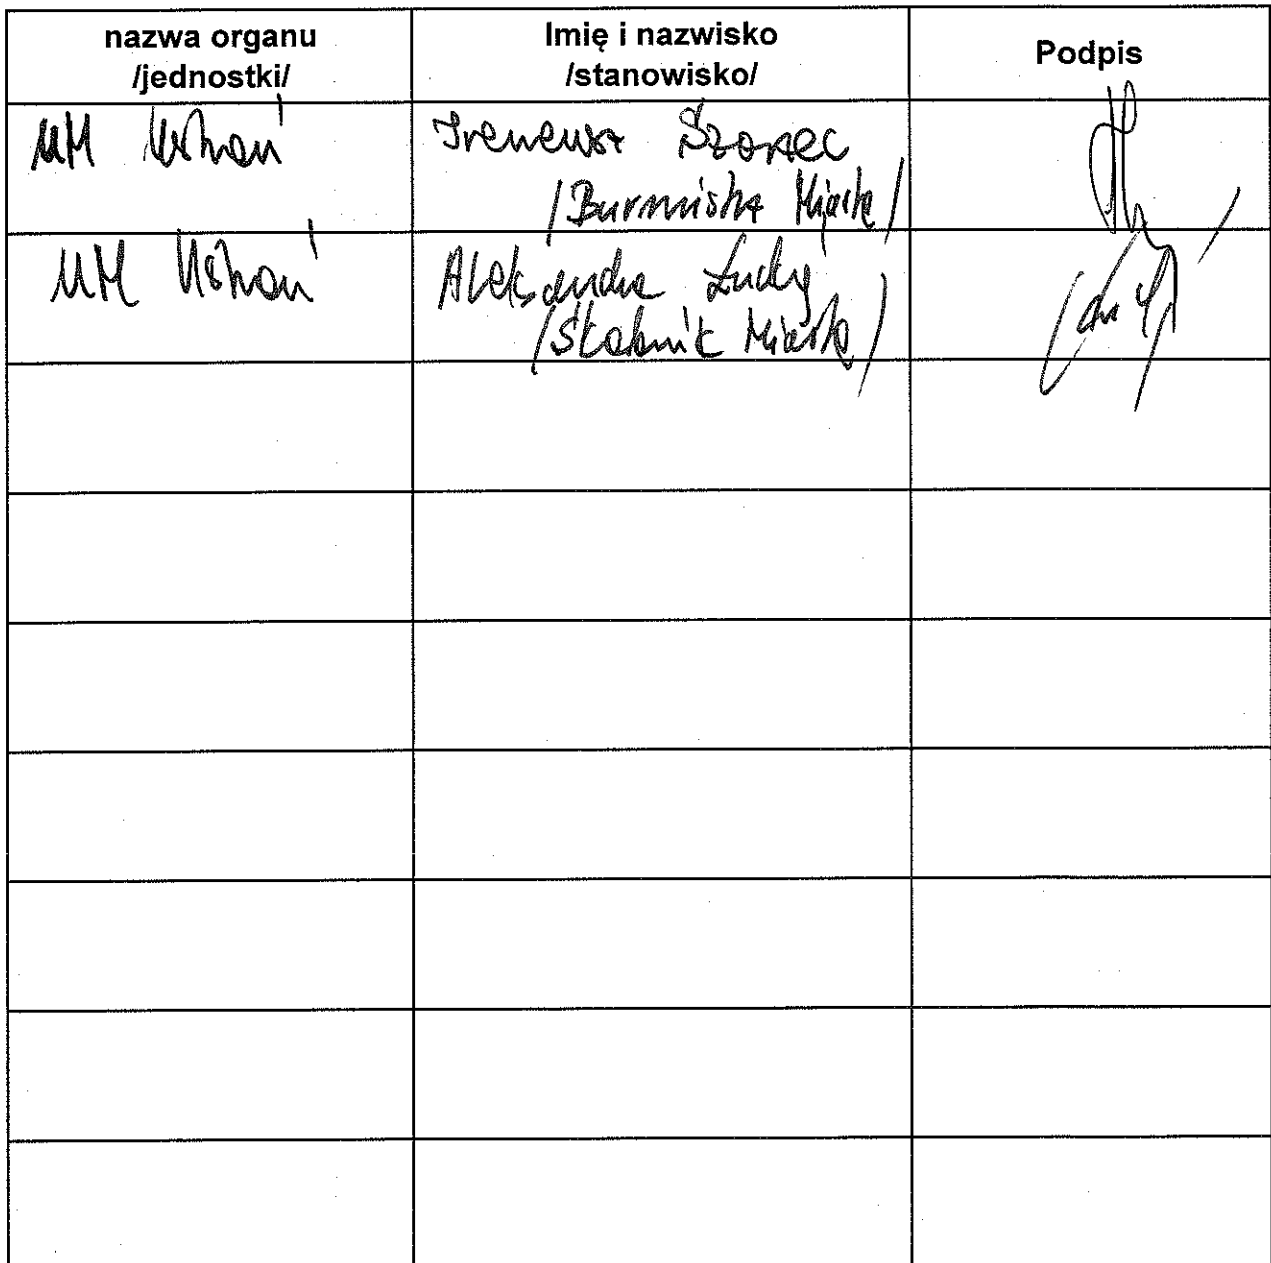 nazwa organu
/jednostki/
Imię i nazwisko
/stanowisko/
Podpis
UM Ustroń
Ireneusz Szarzec
/Burmistrz Miasta/
UM Ustroń
Aleksandra Łuckoś
/Skarbnik Miasta/